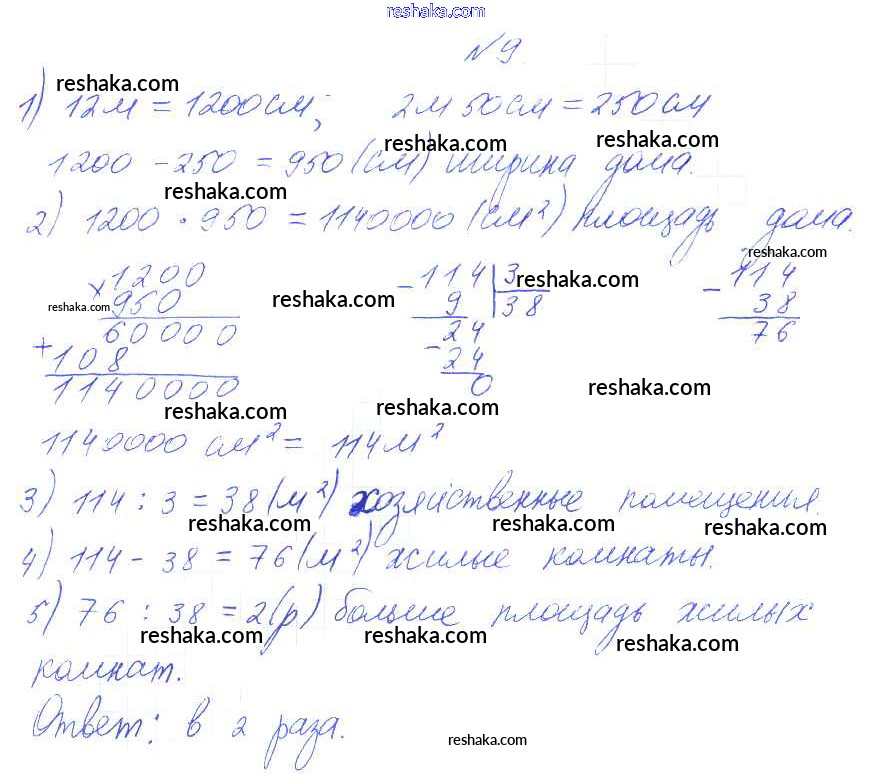 reshaka.com
№9
reshaka.com
1) 12м = 1200см; 2м 50см = 250см
reshaka.com reshaka.com
1200 - 250 = 950 (см) ширина дома.
reshaka.com reshaka.com
2) 1200 · 950 = 1140000 (см²) площадь дома.
reshaka.com
× 1200 - 114 | 3 - 114
reshaka.com 950 reshaka.com 9 | 38 reshaka.com 38
60000 24 76
+ 108 - 24
1140000 0 reshaka.com
reshaka.com reshaka.com
1140000 см² = 114м²
3) 114 : 3 = 38 (м²) хозяйственные помещения.
reshaka.com reshaka.com reshaka.com
4) 114 - 38 = 76 (м²) жилые комнаты.
5) 76 : 38 = 2 (р) больше площадь жилых
reshaka.com reshaka.com reshaka.com
комнат.
Ответ: в 2 раза.
reshaka.com